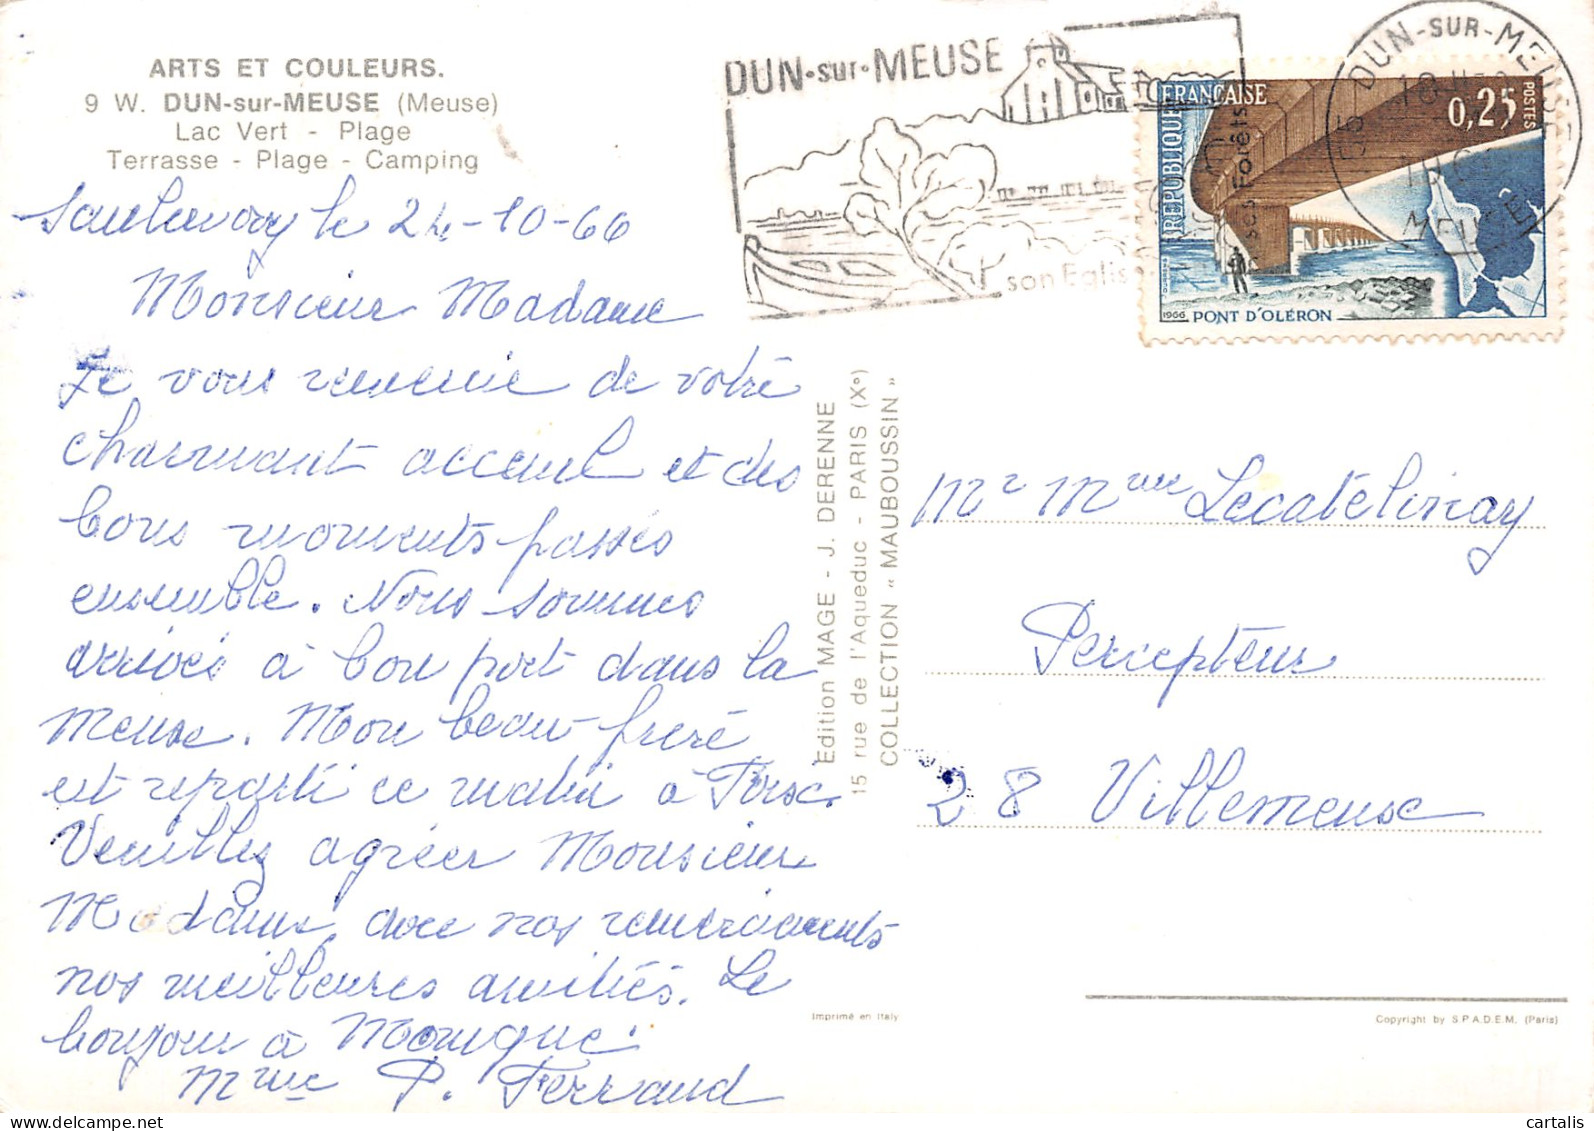 ARTS ET COULEURS.
9 W. DUN-sur-MEUSE (Meuse)
Lac Vert - Plage
Terrasse - Plage - Camping
le 24-10-66
Monsieur Madame
Je vous remercie de votre
charmant acceuil et des
bons moments passés
ensemble. Nous sommes
arrivés à bon port dans la
Meuse. Mon beau-frere
est reparti ce matin à
Veuillez agréer Monsieur
Madame, avec nos remerciements
nos meilleures amitiés. Le
bonjour à Monique.
Mme P. Ferrand
DUN-sur-MEUSE
son Eglise
ses Forêts
DUN-SUR-MEUSE
55
MEUSE
REPUBLIQUE FRANÇAISE
0,25
POSTES
1966 PONT D'OLÉRON
Edition MAGE - J. DERENNE
15 rue de l'Aqueduc - PARIS (X°)
COLLECTION « MAUBOUSSIN »
Mr Mme
Percepteur
28 Villemeuse
Imprimé en Italy
Copyright by S.P.A.D.E.M. (Paris)
cartalis
www.delcampe.net